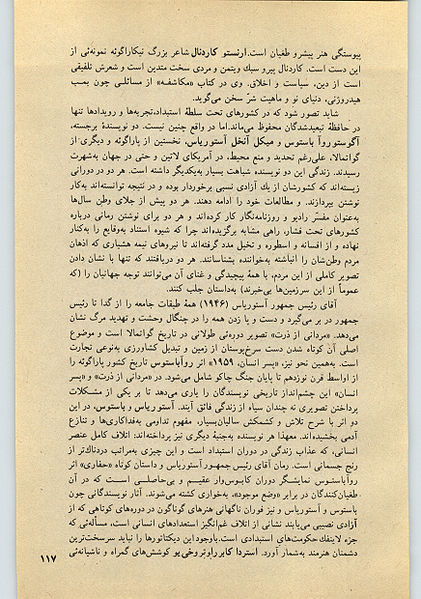 پیوستگی هنر پیشرو طغیان است. ارنستو کاردنال شاعر بزرگ نیکاراگوئه نمونه‌ئی از
این دست است. کاردنال پیرو سبك ویتمن و مردی سخت متدین است و شعرش تلفیقی
است از دین، سیاست و اخلاق. وی در کتاب «مکاشفه» از مسائلی چون بمب
هیدروژنی، دنیای نو و ماهیت شرّ سخن می‌گوید.
شاید تصور شود که در کشورهای تحت سلطهٔ استبداد، تجربه‌ها و رویدادها تنها
در حافظهٔ تبعیدشدگان محفوظ می‌ماند. اما در واقع چنین نیست. دو نویسندهٔ برجسته،
آگوستوروآ باستوس و میگل آنخل آستوریاس، نخستین از پاراگوئه و دیگری از
گواتمالا، علی‌رغم تحدید و منع محیط، در آمریکای لاتین و حتی در جهان به‌شهرت
رسیدند. زندگی این دو نویسنده شباهت بسیار به‌یکدیگر داشته است. هر دو در دورانی
زیسته‌اند که کشورشان از یك آزادی نسبی برخوردار بوده و در نتیجه توانسته‌اند به‌کار
نوشتن بپردازند. و مطالعات خود را ادامه دهند. هر دو پیش از جلای وطن سال‌ها
به‌عنوان مفسّر رادیو و روزنامه‌نگار کار کرده‌اند و هر دو برای نوشتن رمانی درباره
کشورهای تحت فشار، راهی مشابه برگزیده‌اند چرا که شیوه استناد به‌وقایع را به‌کنار
نهاده و از افسانه و اسطوره و تخیل مدد گرفته‌اند تا نیروهای نیمه هشیاری که اذهان
مردم وطن‌شان را انباشته به‌خواننده بشناسانند. هر دو دریافتند که تنها با نشان دادن
تصویر کاملی از این مردم، با همهٔ پیچیدگی و غنای آن می‌توانند توجه جهانیان را (که
عموماً از این سرزمین‌ها بی‌خبرند) به‌داستان جلب کنند.
آقای رئیس جمهور آستوریاس (۱۹۴۶) همهٔ طبقات جامعه را از گدا تا رئیس
جمهور در بر می‌گیرد و دست و پا زدن همه را در چنگال وحشت و تهدید مرگ نشان
می‌دهد. «مردانی از ذرت» تصویر دوره‌ئی طولانی در تاریخ گواتمالا است و موضوع
اصلی آن کوتاه شدن دست سرخ‌پوستان از زمین و تبدیل کشاورزی به‌نوعی تجارت
است. به‌همین نحو نیز، «پسر انسان، ۱۹۵۹» اثر روآباستوس تاریخ کشور پاراگوئه را
از اواسط قرن نوزدهم تا پایان جنگ چاکو شامل می‌شود. در «مردانی از ذرت» و «پسر
انسان» این چشم‌انداز تاریخی نویسندگان را یاری می‌دهد تا بر یکی از مشکلات
پرداختن تصویری نه چندان سیاه از زندگی فائق آیند. آستوریاس و باستوس، در این
دو اثر با شرح تلاش و کشمکش سالیان‌بسیار، مفهوم تداومی به‌فداکاری‌ها و تنازع
آدمی بخشیده‌اند. معهذا هر نویسنده به‌جنبهٔ دیگری نیز پرداخته‌اند: اتلاف کامل عنصر
انسانی، که عذاب زندگی در دوران استبداد است و این چیزی به‌مراتب دردناك‌تر از
رنج جسمانی است. رمان آقای رئیس جمهور آستوریاس و داستان کوتاه «حفاری» اثر
روآباستوس نمایشگر دوران کابوس‌وار عقیم و بی‌حاصلی است که در آن
طغیان‌کنندگان در برابر «وضع موجود»، به‌خواری کشته می‌شوند. آثار نویسندگانی چون
باستوس و آستوریاس و نیز فوران ناگهانی هنرهای گوناگون در دوره‌های کوتاهی که از
آزادی نصیبی می‌یابند نشانی از اتلاف غم‌انگیز استعدادهای انسانی است، مسأله‌ئی که
جزء لاینفك حکومت‌های استبدادی است. باوجود این دیکتاتورها را نباید سرسخت‌ترین
دشمنان هنرمند به‌شمار آورد. استردا کابررا و تروخی‌یو کوشش‌های گمراه و ناشیانه‌ئی
۱۱۷